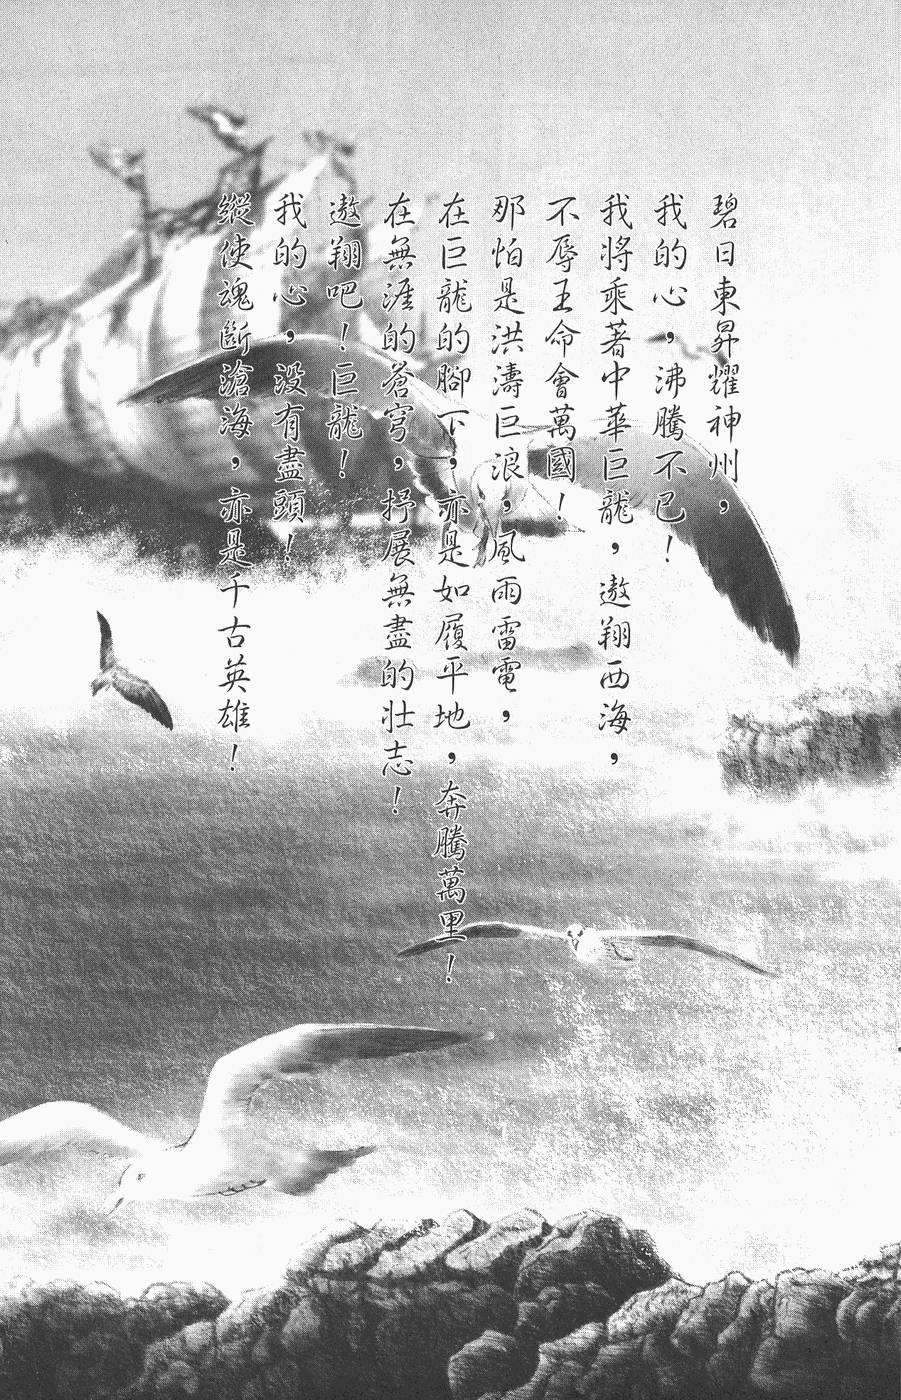 碧日東昇耀神州，
我的心，沸騰不已！
我將乘著中華巨龍，遨翔西海，
不辱王命會萬國！
那怕是洪濤巨浪，風雨雷電，
在巨龍的腳下，亦是如履平地，奔騰萬里！
在無涯的蒼穹，抒展無盡的壯志！
遨翔吧！巨龍！
我的心，沒有盡頭！
縱使魂斷滄海，亦是千古英雄！